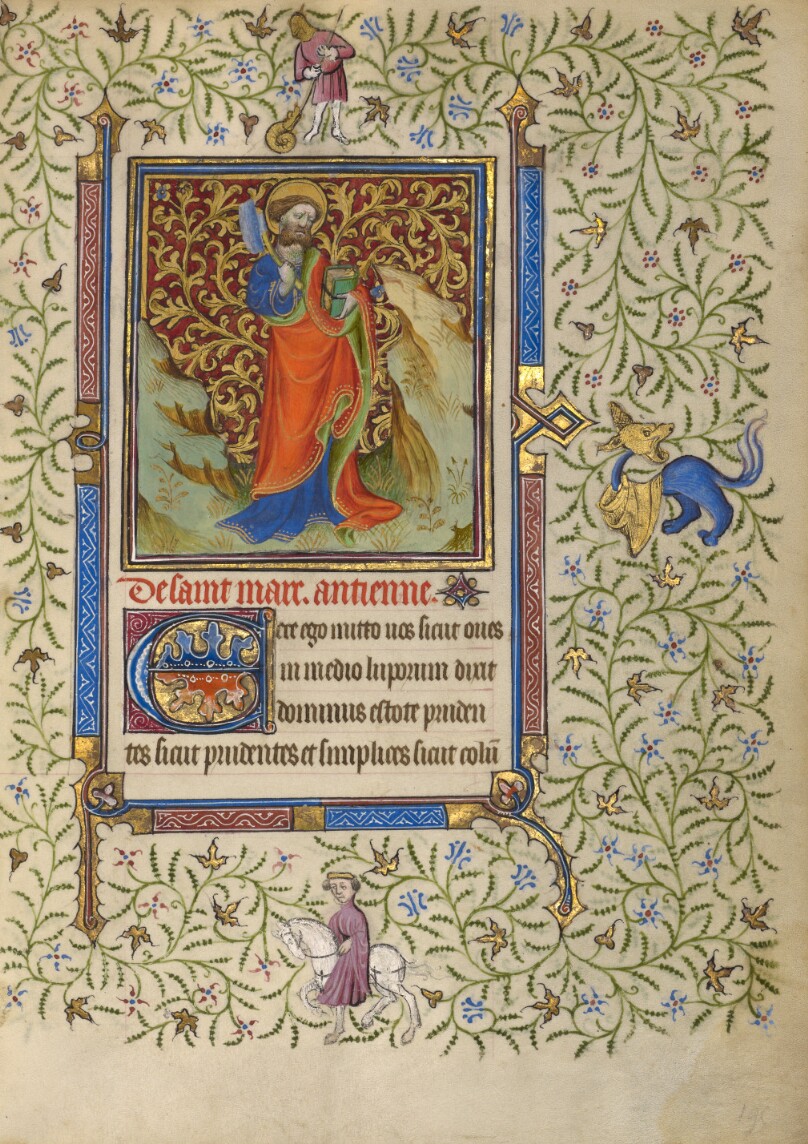 De saint marc. antienne.
Ecce ego mitto uos sicut oues
in medio luporum dixit
dominus estote pruden
tes sicut prudentes et simplices sicut colū